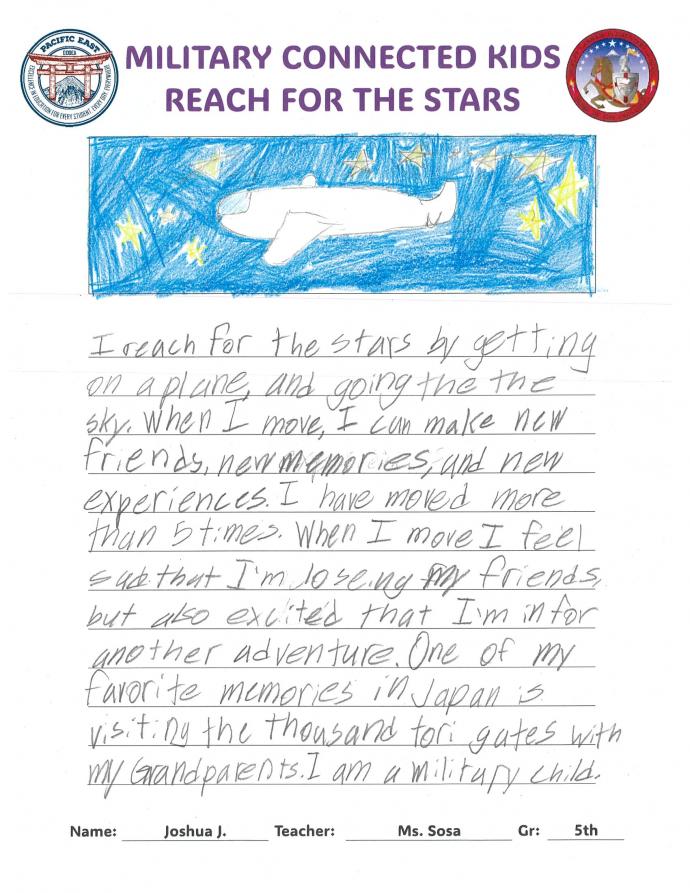 PACIFIC EAST
DODEA
EXCELLENCE IN EDUCATION FOR EVERY STUDENT, EVERY DAY, EVERYWHERE
MILITARY CONNECTED KIDS
REACH FOR THE STARS
I reach for the stars by getting
on a plane, and going the the
sky. When I move, I can make new
friends, new memories, and new
experiences. I have moved more
than 5 times. When I move I feel
sad that I'm loseing my friends,
but also excited that I'm in for
another adventure. One of my
favorite memories in Japan is
visiting the thousand tori gates with
my Grandparents. I am a military child.
Name: Joshua J. Teacher: Ms. Sosa Gr: 5th